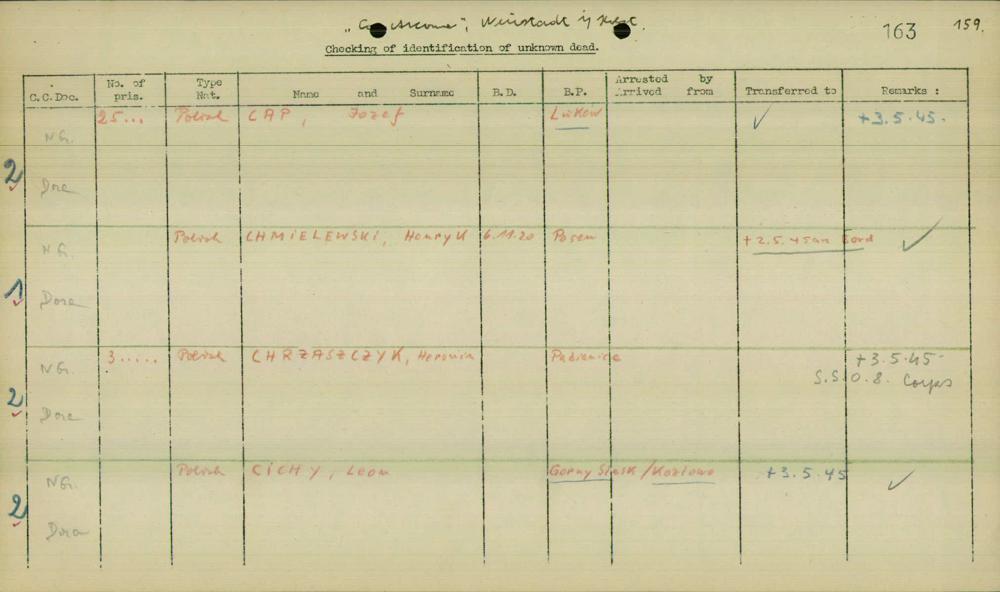 "Cap Arcona", Neustadt i/ Holst.
163 159.
Checking of identification of unknown dead.
C.C.Doc. No. of pris. Type Nat. Name and Surname B.D. B.P. Arrested by Arrived from Transferred to Remarks :
25... Polish CAP, Jozef Luków +3.5.45.
NG.
2
Dora
Polish CHMIELEWSKI, Henryk 6.11.20 Posen +2.5.45 an Bord
NG.
1
Dora
3..... Polish CHRZASZCZYK, Heronim Pabianice +3.5.45
NG. S.S.O.8. Corps
2
Dora
Polish CICHY, Leon Gorny Slask / Kozlowo +3.5.45
NG.
2
Dora